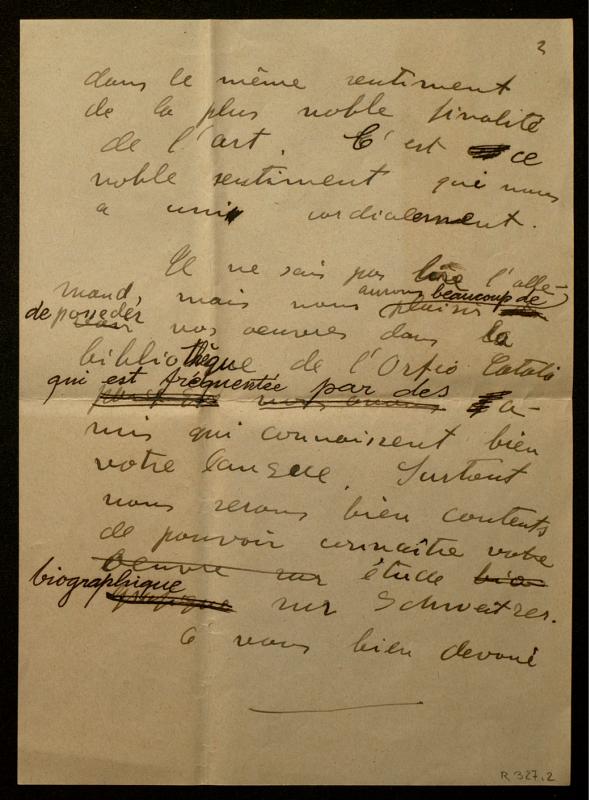 2
dans le même sentiment
de la plus noble finalité
de l'art. C'est ce
noble sentiment qui nous
a unis cordialement.
Je ne sais pas lire l'alle-
mand, mais nous aurons beaucoup de plaisir
de posseder vos oeuvres dans la
bibliothèque de l'Orfeó Català
qui est fréquentée par des
a-
mis qui connaissent bien
votre langue. Surtout
nous serons bien contents
de pouvoir connaître votre
oeuvre sur étude bio
biographique
sur Schweitzer.
C vous bien devoué
R 327.2